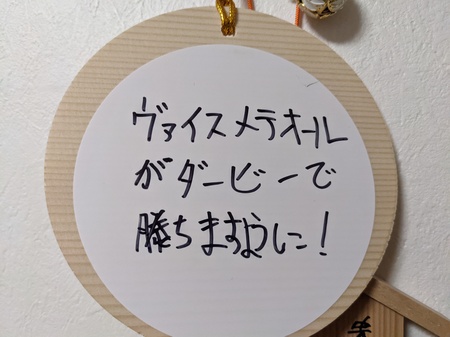 ヴァイスメテオール
がダービーで
勝ちますように！